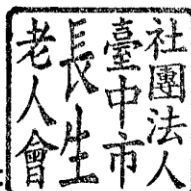 社團法人
臺中市
長生
老人會